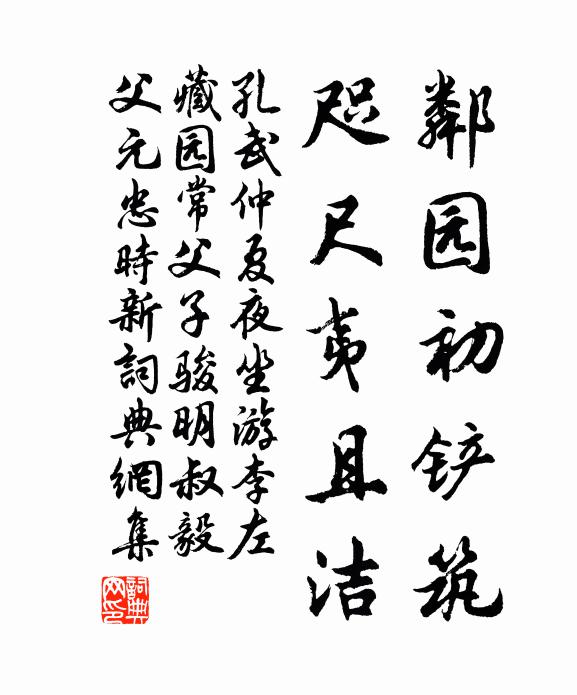 鄰园初铲筑
咫尺夷且洁
孔武仲夏夜坐游李左
藏园常父子骏明叔毅
父元忠時新詞典網集
詞典网印